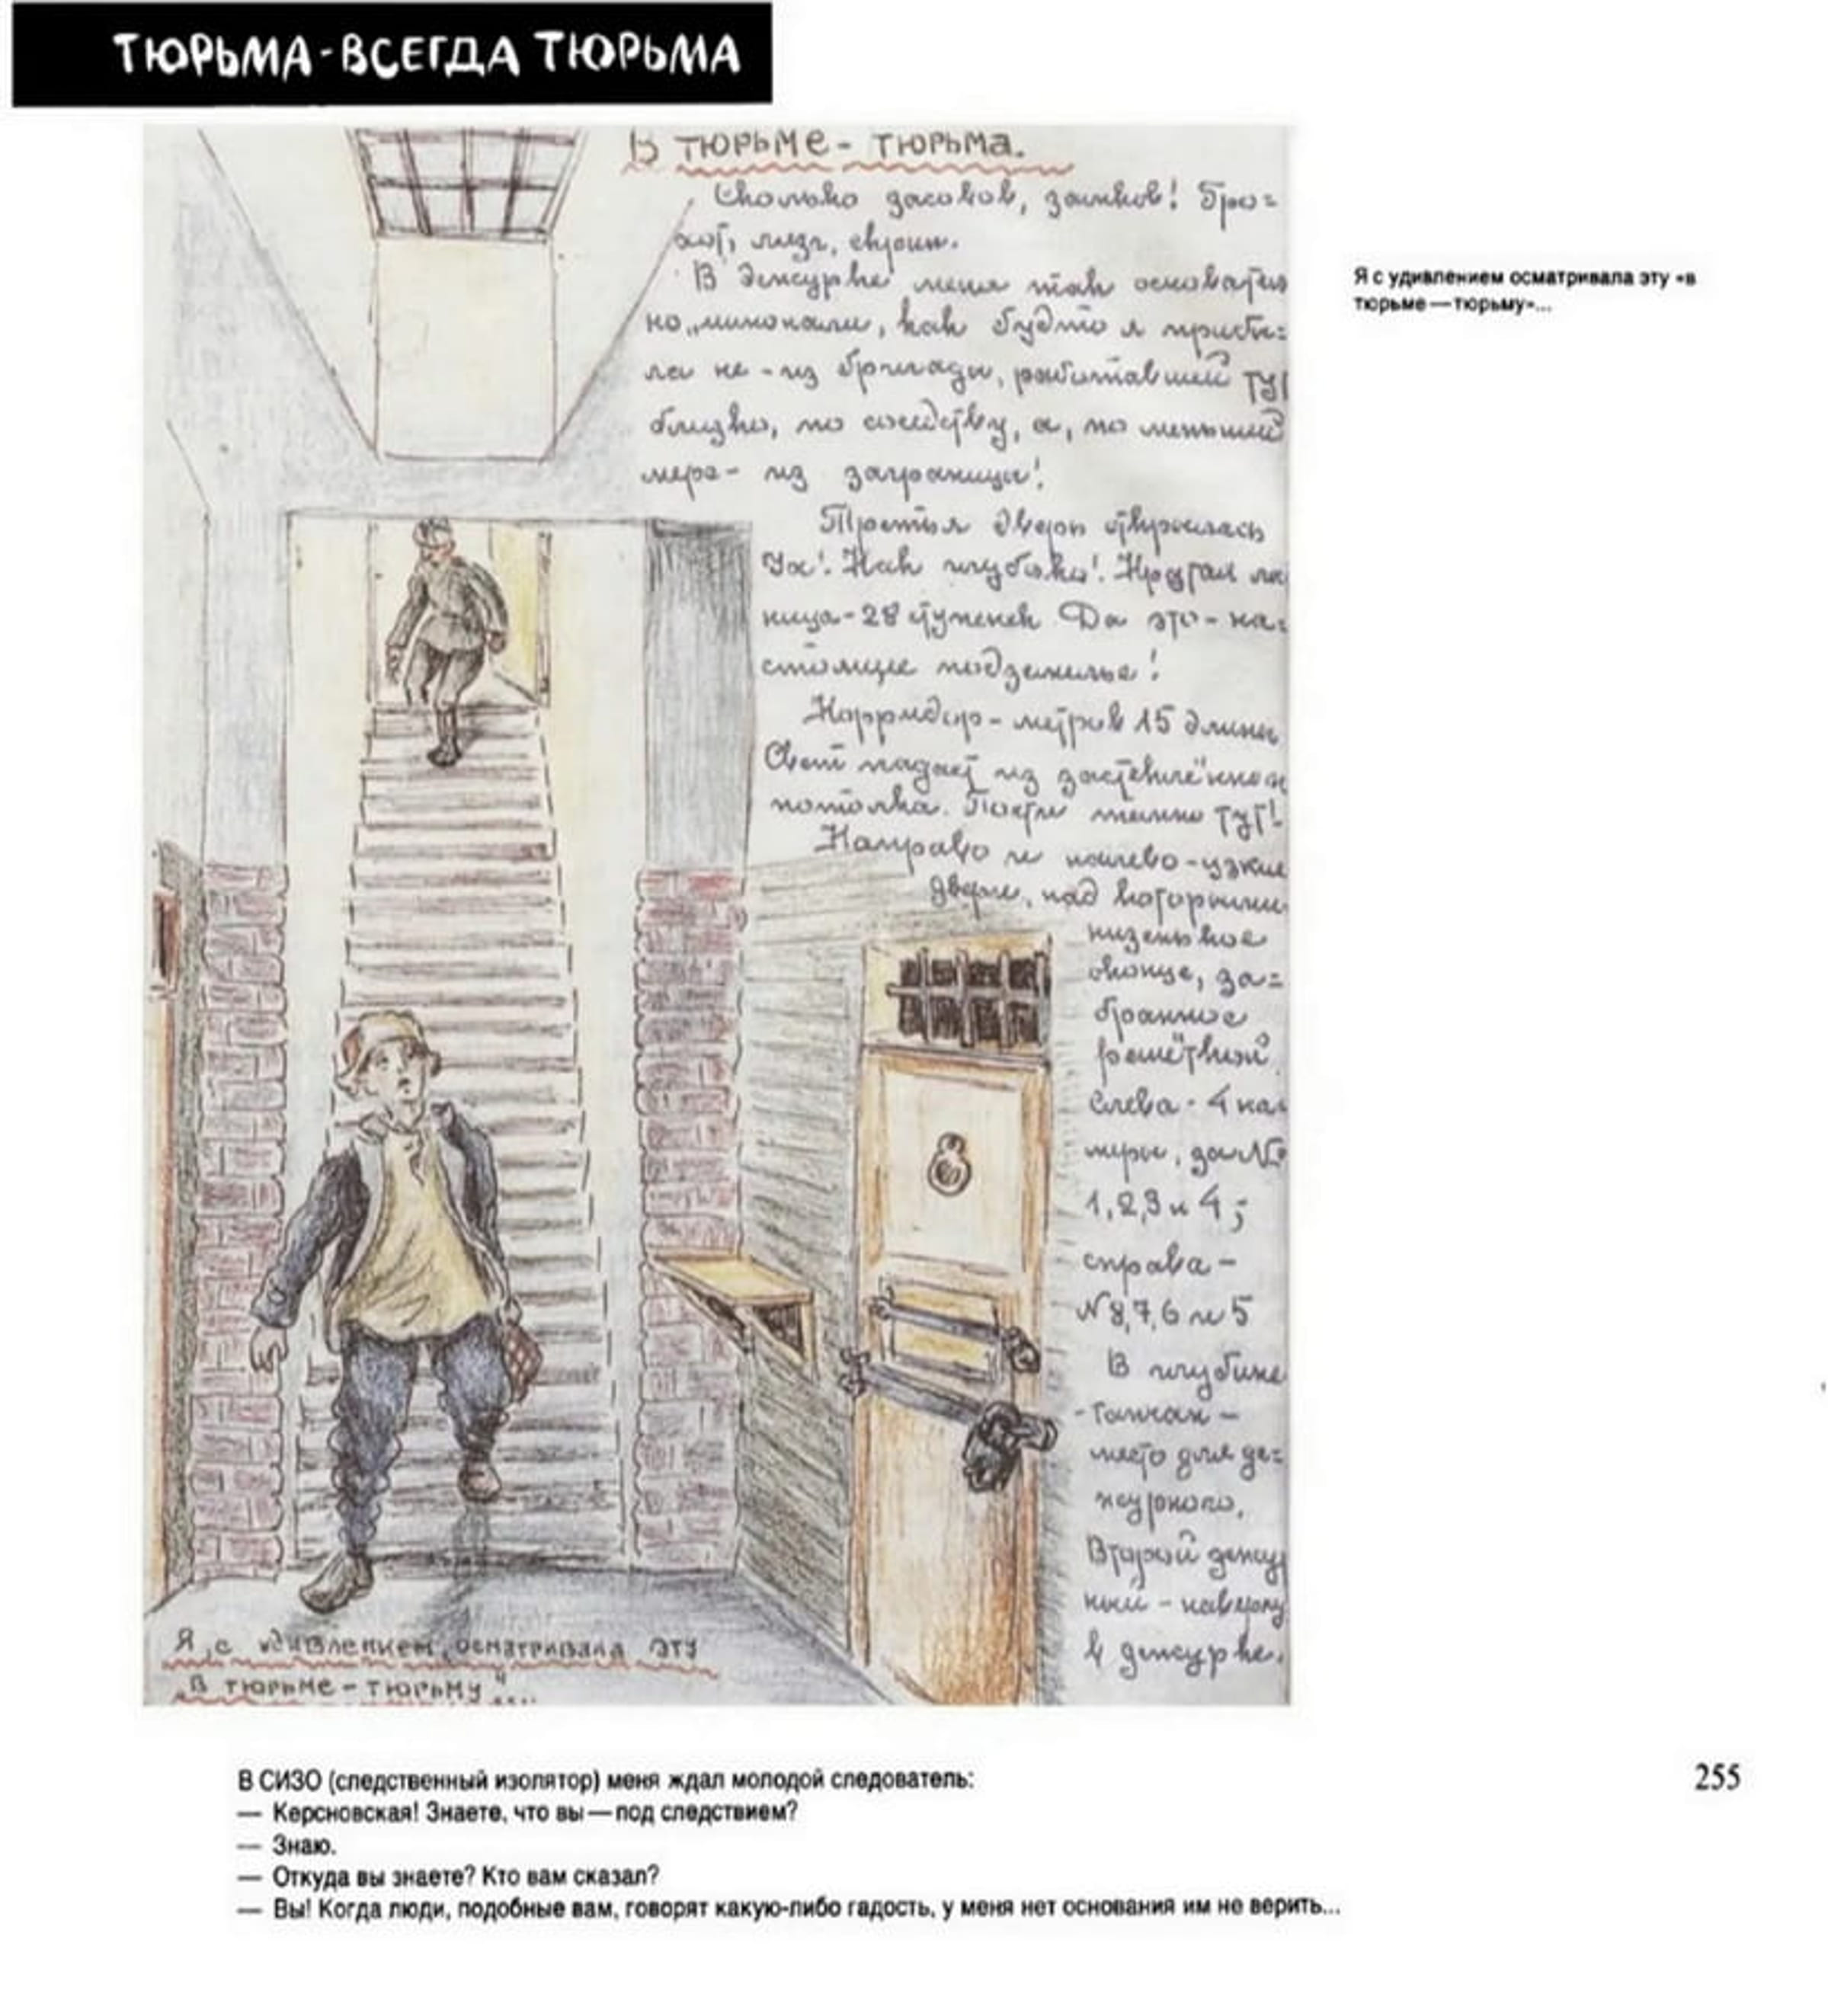 ТЮРЬМА-ВСЕГДА ТЮРЬМА
В тюрьме - тюрьма.
Сколько засовов, замков! Гро=
хот, лязг, скрип.
В дежурке меня так основатель
но „шмонали, как будто я прибы=
ла не - из бригады, работавшей тут
близко, по соседству, а, по меньшей
мере - из заграницы!
Третья дверь открылась
Ух! Как глубоко! Крутая ле
ница - 28 ступенек Да это - на=
стоящее подземелье!
Корридор - метров 15 длины
Свет падает из застеклённого
потолка. Только тут!
Направо и налево - узкие
двери, над которыми
низенькое
оконце, за=
бранное
решёткой
Слева - 4 ка=
меры, за №
1,2,3 и 4;
справа -
N 8,7,6 и 5
В глубине
- топчан -
место для де=
журного.
Второй дежур
ный - наверху
в дежурке.
Я с удивлением осматривала эту
„В тюрьме - тюрьму"....
Я с удивлением осматривала эту «в
тюрьме — тюрьму»...
В СИЗО (следственный изолятор) меня ждал молодой следователь:
— Керсновская! Знаете, что вы — под следствием?
— Знаю.
— Откуда вы знаете? Кто вам сказал?
— Вы! Когда люди, подобные вам, говорят какую-либо гадость, у меня нет основания им не верить...
255